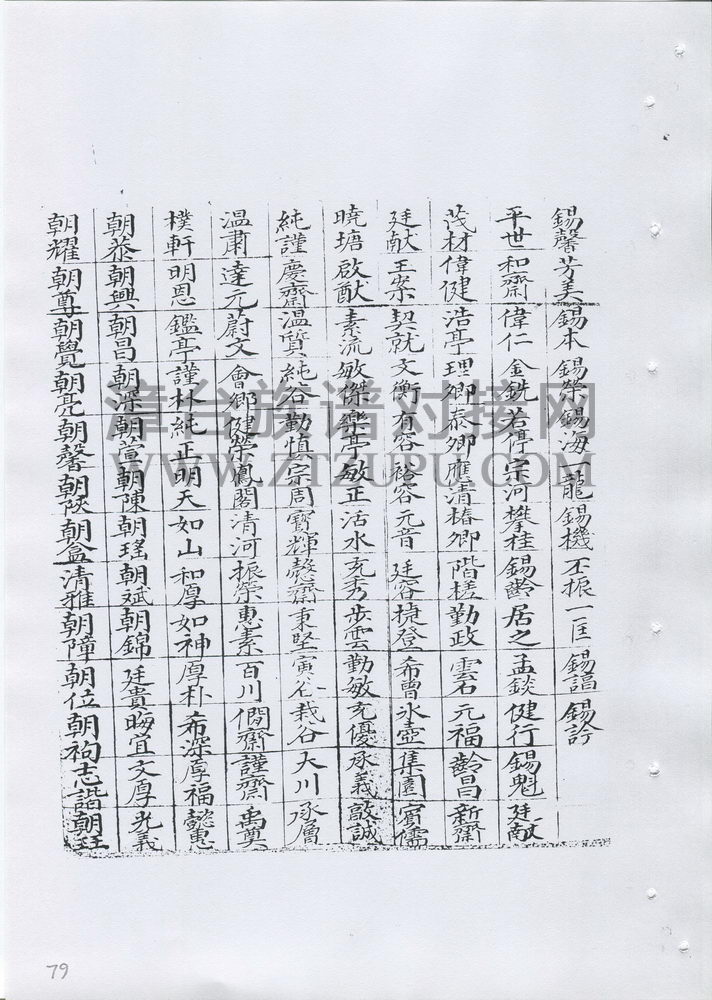 錫馨 芳美 錫本 錫榮 錫海 一龍 錫機 丕振 一匡 錫諨 錫訡
平世 和齋 偉仁 金銑 若停 宗河 攀桂 錫齡 居之 孟錟 健行 錫魁 廷献
茂材 偉健 浩亭 理卿 泰卿 應清 椿卿 階槎 勤政 雲石 元福 齡昌 新衢
廷献 王寀 契就 文衡 有容 裕容 元音 廷容 捷登 希曾 氷壺 集園 賓儒
曉塘 啟猷 素流 敏傑 樂亭 敏正 活水 克秀 步雲 勤敏 克優 承義 啟誠
純謹 慶齋 温質 純谷 勤慎 宗周 寶輝 慤齋 秉堅 寅谷 栽谷 大川 承層
温肅 達元 蔚文 會鄉 健榮 鳳閣 清河 振榮 惠素 百川 僩齋 謹齋 禹奠
樸軒 明恩 鑑亭 謹林 純正 明天 如山 和厚 如神 厚朴 希深 厚福 懿惠
朝恭 朝興 朝昌 朝深 朝萱 朝陳 朝瑤 朝斌 朝錦 廷貴 晦宜 文厚 光義
朝耀 朝尊 朝覺 朝亮 朝馨 朝陝 朝盒 清雅 朝障 朝位 朝袧 志諧 朝珏
津台族谱对接网
WWW.ZTZUPU.COM
79